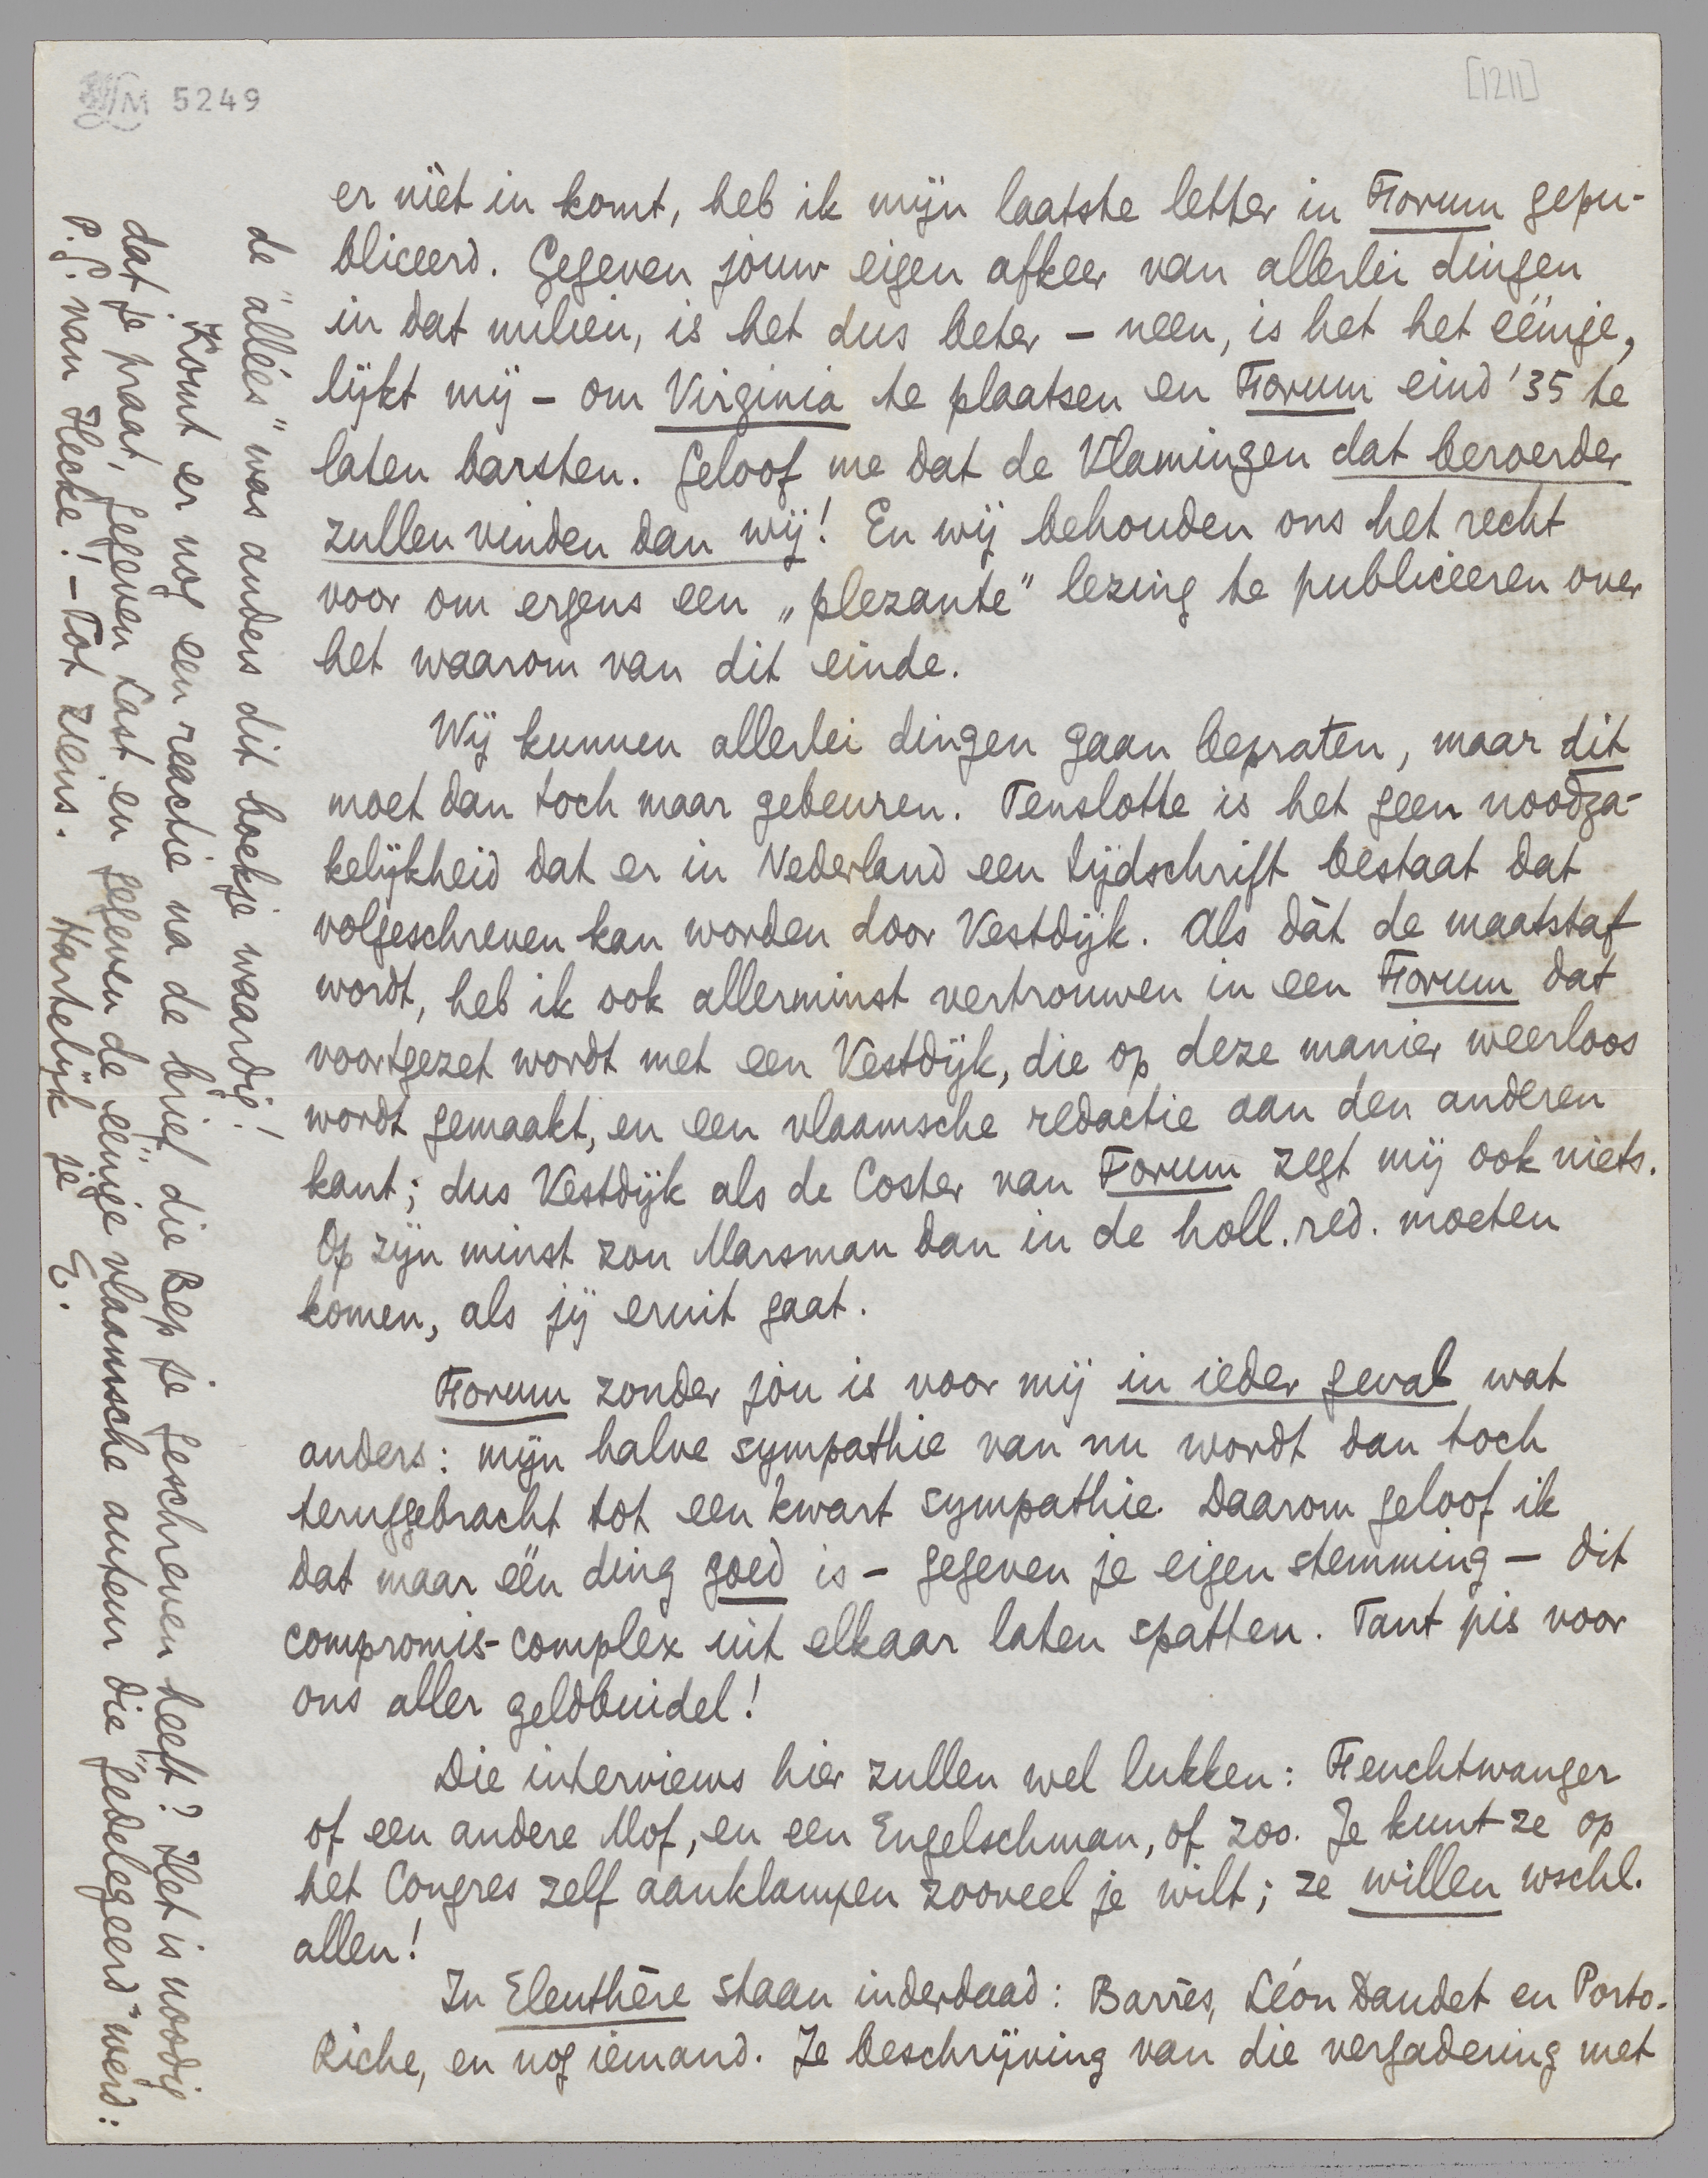 5249
[1211]
er níet in komt, heb ik mijn laatste letter in Forum gepu-
bliceerd. Gegeven jouw eigen afkeer van allerlei dingen
in dat milieu, is het dus beter – neen, is het het eénige,
lijkt mij – om Virginia te plaatsen en Forum eind '35 te
laten barsten. Geloof me dat de Vlamingen dat beroerder
zullen vinden dan wij! En wij behouden ons het recht
voor om ergens een „plezante" lezing te publiceeren over
het waarom van dit einde.
Wij kunnen allerlei dingen gaan bepraten, maar dit
moet dan toch maar gebeuren. Tenslotte is het geen noodza-
kelijkheid dat er in Nederland een tijdschrift bestaat dat
volgeschreven kan worden door Vestdijk. Als dàt de maatstaf
wordt, heb ik ook allerminst vertrouwen in een Forum dat
voortgezet wordt met een Vestdijk, die op deze manier weerloos
wordt gemaakt, en een vlaamsche redactie aan den anderen
kant; dus Vestdijk als de Coster van Forum zegt mij ook niets.
Op zijn minst zou Marsman dan in de holl. red. moeten
komen, als jij eruit gaat.
Forum zonder jou is voor mij in ieder geval wat
anders: mijn halve sympathie van nu wordt dan toch
teruggebracht tot een kwart sympathie. Daarom geloof ik
dat maar één ding goed is – gegeven je eigen stemming – dit
compromis-complex uit elkaar laten spatten. Tant pis voor
ons aller geldbuidel!
Die interviews hier zullen wel lukken: Feuchtwanger
of een andere Mof, en een Engelschman, of zoo. Je kunt ze op
het Congres zelf aanklampen zooveel je wilt; ze willen wschl.
allen!
In Eleuthère staan inderdaad: Barrès, Léon Daudet en Porto-
Riche, en nog iemand. Je beschrijving van die vergadering met
de "alléés" was anders dit boekje waardig!
Komt er nog een reactie na de brief die Bep je geschreven heeft? Het is noodig
dat je praat, gegeven Last en gegeven de eénige vlaamsche auteur die "gedelegeerd" werd:
P.G. van Hecke! – Tot ziens. Hartelijk je E.